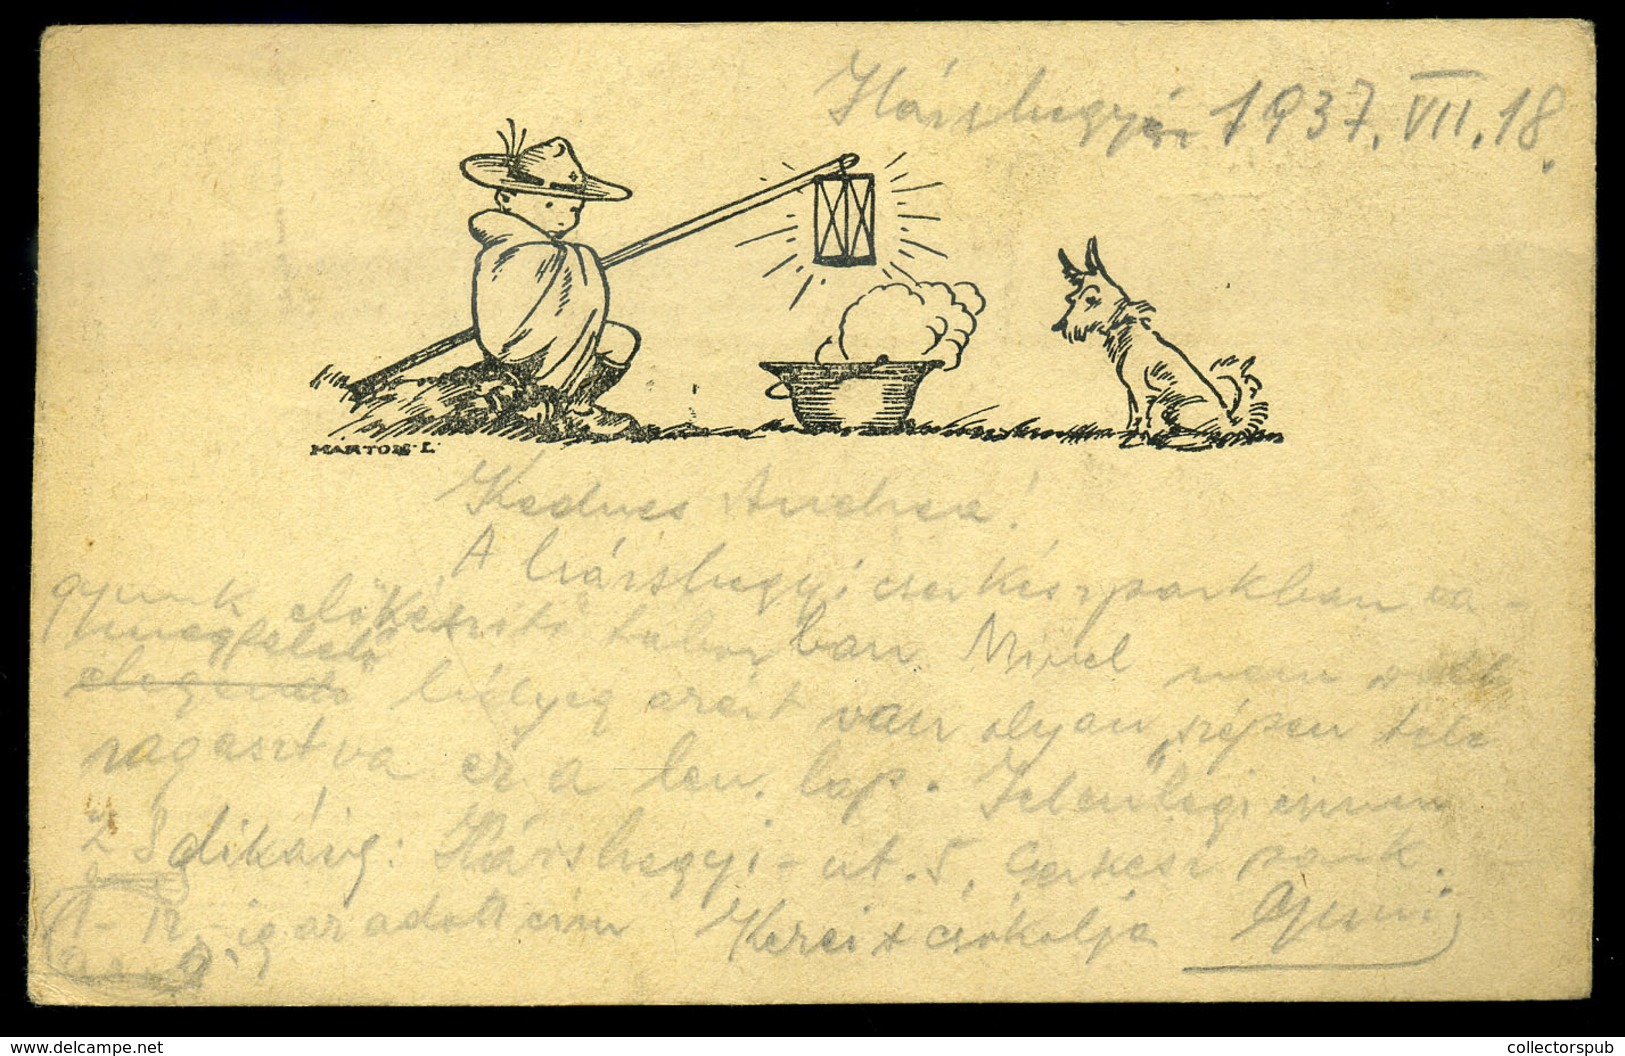 Hárshegy 1937. VII. 18.
MÁRTON-L.
Kedves Andrea!
A hárshegyi cserkészparkban va-
gyunk előkészítő táborban Mivel nem volt
megfelelő
elegendő bélyeg azért van olyan "szépen tele
ragasztva ez a lev. lap. Jelenlegi címem
Hárshegyi-út. 5, Cserkész park.
-ig az adott cím Kezeit csókolja
www.delcampe.net
collectorspub